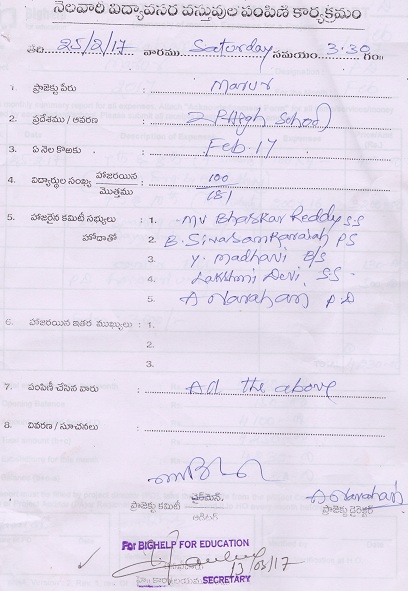 నెలవారీ విద్యావసర వస్తువుల పంపిణీ కార్యక్రమం
తేది 25/2/17 వారము Saturday సమయం 3.30 గం॥
1. ప్రాజెక్టు పేరు : Marur
2. ప్రదేశము / ఆవరణ : School
3. ఏ నెల కొఱకు : Feb-17
4. విద్యార్థుల సంఖ్య హాజరయిన / మొత్తము : 100 / 181
5. హాజరైన కమిటీ సభ్యులు : 1. Mr Bhaskar Reddy S.S
హోదాతో 2. B. PS
3. Y. Madhavi
4. Lakshmi Devi, SS
5. A P.D
6. హాజరయిన ఇతర ముఖ్యులు : 1.
2.
3.
7. పంపిణీ చేసిన వారు : All the above
8. వివరణ / సూచనలు :
ప్రాజెక్టు కమిటీ ఛైర్మెన్ / ఆడిటర్
ప్రాజెక్టు డైరెక్టర్
For BIGHELP FOR EDUCATION
13/03/17
SECRETARY